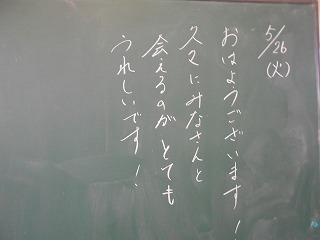 5/26
(火)
おはようございます!
久々にみなさんと
会えるのがとても
うれしいです!